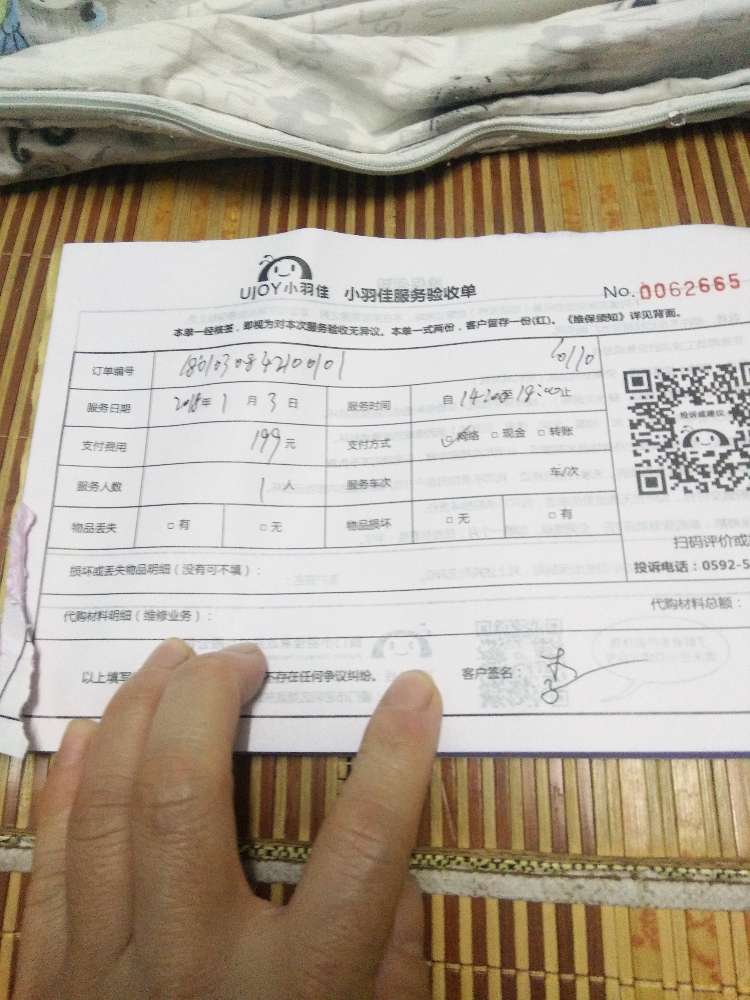 UJOY小羽佳 小羽佳服务验收单 No. 0062665
本单一经核签，即视为对本次服务验收无异议。本单一式两份，客户留存一份(红)。《维保须知》详见背面。
订单编号
服务日期 2018年 1 月 3 日 服务时间 自 14:00至18:00止
支付费用 199元 支付方式 网络 □ 现金 □ 转账
服务人数 1 人 服务车次 车/次
物品丢失 □ 有 □ 无 物品损坏 □ 无 □ 有
投诉或建议
扫码评价或
投诉电话：0592-5
损坏或丢失物品明细（没有可不填）：
代购材料明细（维修业务）： 代购材料总额：
以上填写 不存在任何争议纠纷。 客户签名：